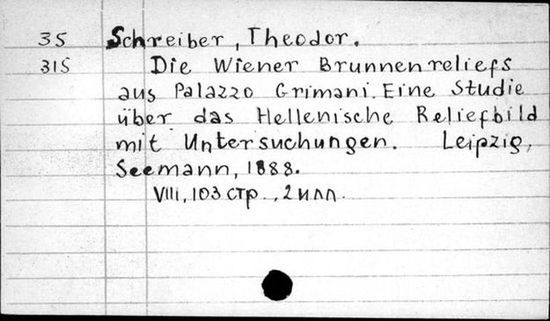 35 Schreiber, Theodor.
315 Die Wiener Brunnenreliefs
aus Palazzo Grimani. Eine Studie
über das Hellenische Reliefbild
mit Untersuchungen. Leipzig,
Seemann, 1888.
VIII, 103 стр., 2 илл.